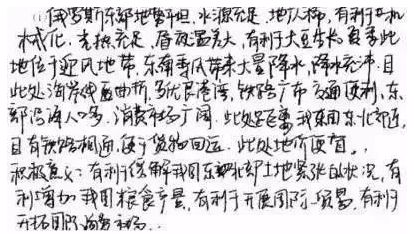 (1)俄罗斯东部地势平坦,水源充足,地广人稀,有利于机
械化,光热充足,昼夜温差大,有利于大豆生长,夏季此
地位于迎风地带,东南季风带来大量降水,降水充沛,且
此处海岸线曲折,多优良港湾,铁路广布,交通便利,东
部沿海人口多,消费市场广阔,此处距离我国东北部近,
且有铁路相通,便于货物回运,此处地价便宜。
积极意义:有利于缓解我国东北部土地紧张的状况,有
利增加我国粮食产量,有利于开展国际贸易,有利于
开拓国际海外市场.